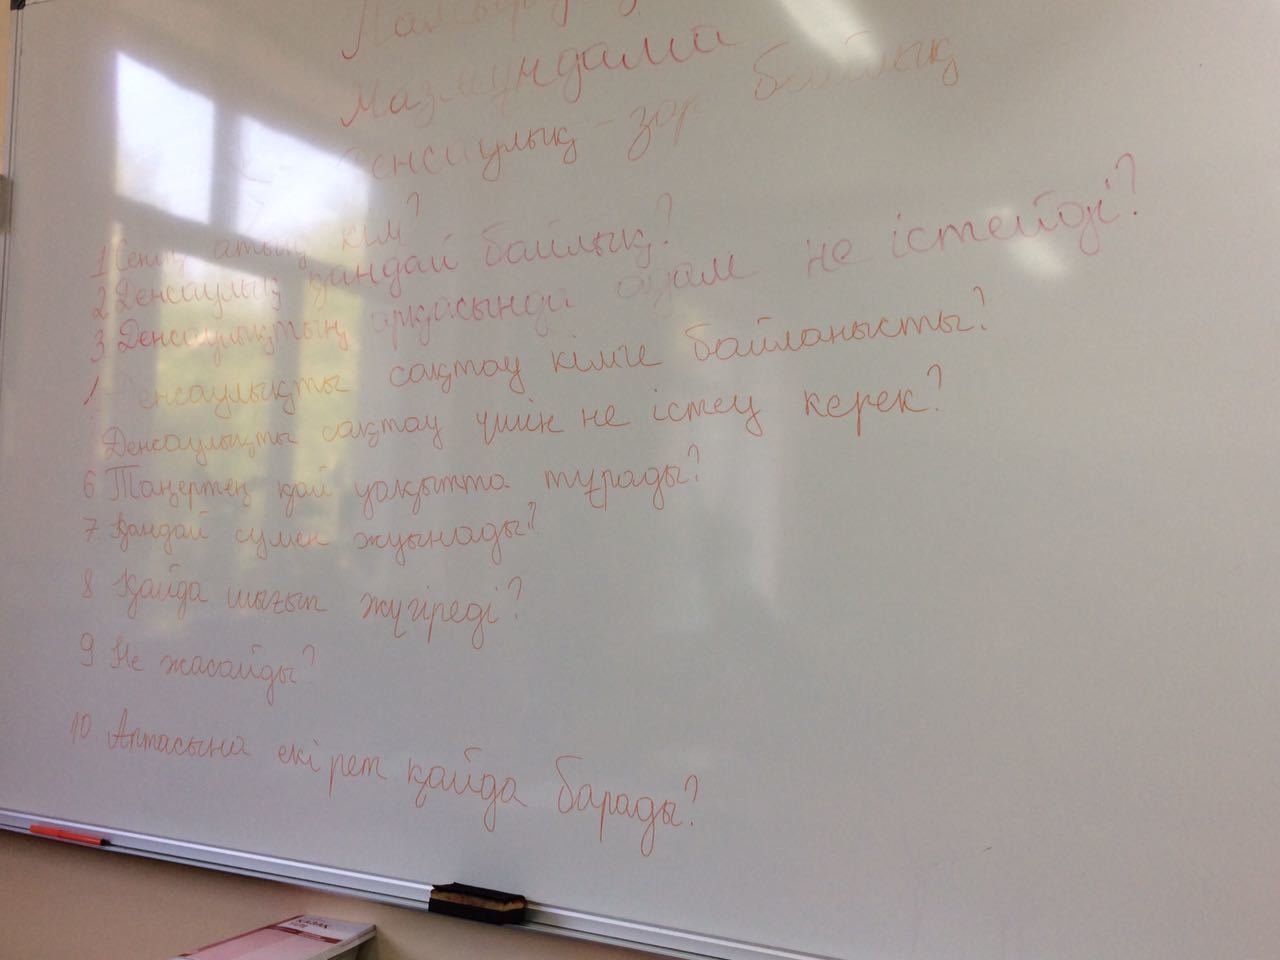 Мазмұндама
Денсаулық - зор байлық
1 Сенің атың кім?
2 Денсаулық қандай байлық?
3 Денсаулықтың арқасында адам не істейді?
Денсаулықты сақтау кімге байланысты?
Денсаулықты сақтау үшін не істеу керек?
6 Таңертең қай уақытта тұрады?
7. Қандай сумен жуынады?
8 Қайда шығып жүгіреді?
9 Не жасайды?
10. Аптасына екі рет қайда барады?
ҚАЗАҚ